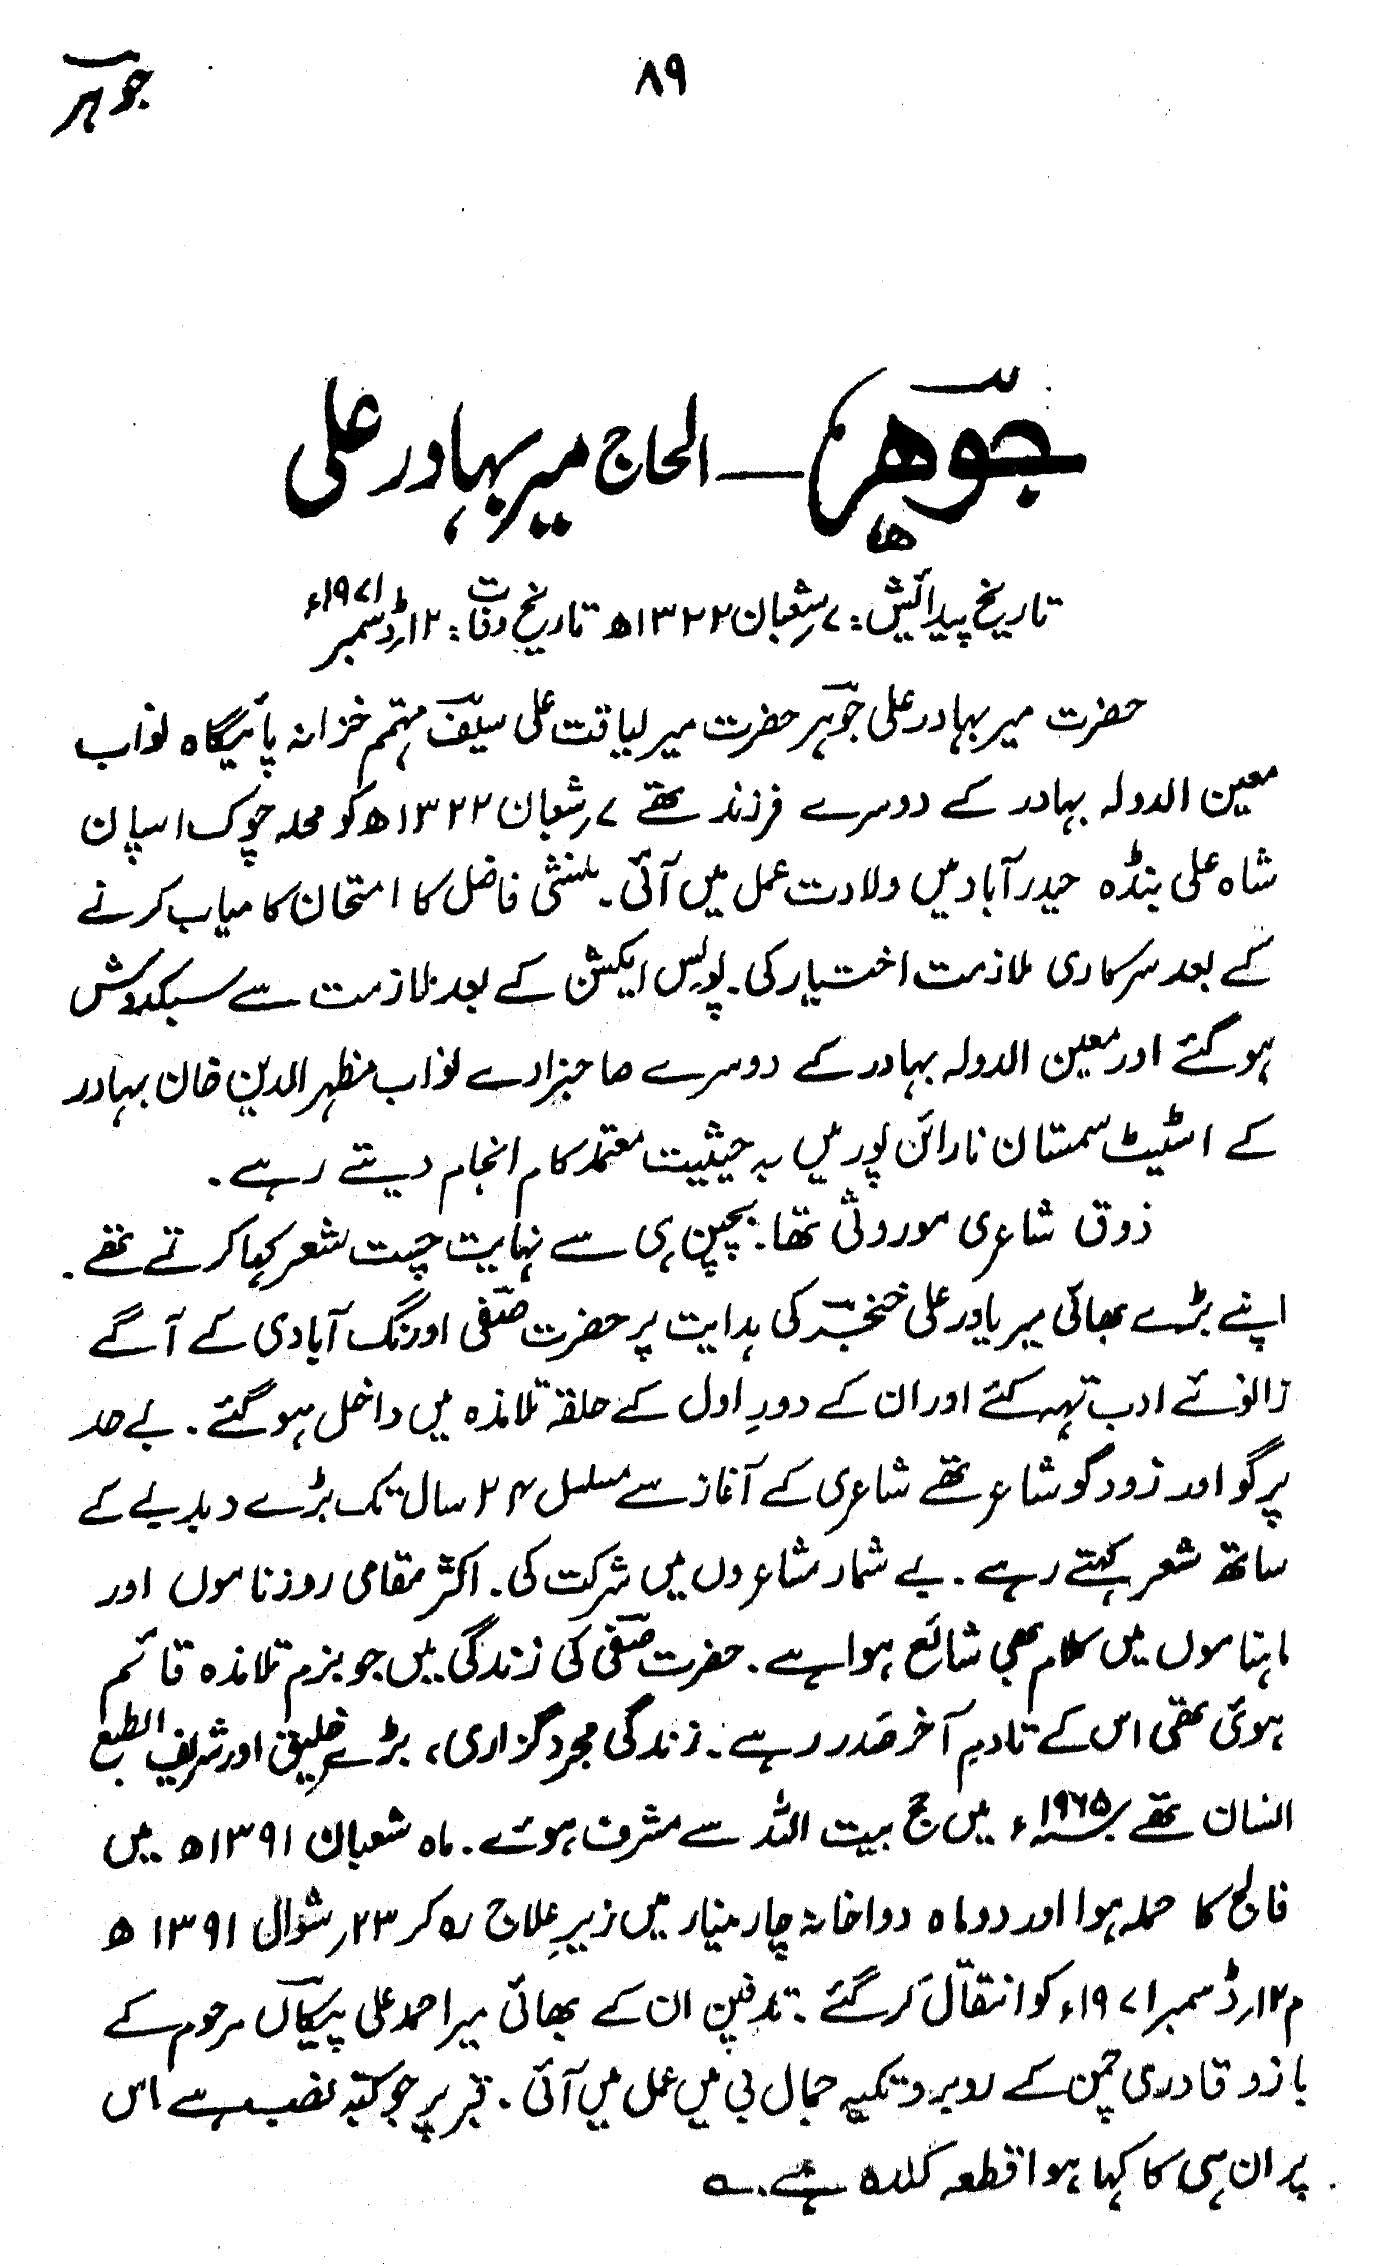 جوہر
۸۹
جوہر — الحاج میر بہادر علی
تاریخ پیدائش: ۷ شعبان ۱۳۲۲ھ تاریخ وفات: ۱۲ ڈسمبر ۱۹۷۱ء
حضرت میر بہادر علی جوہر حضرت میر لیاقت علی سیف مہتمم خزانہ پائیگاہ نواب
معین الدولہ بہادر کے دوسرے فرزند تھے ۷ شعبان ۱۳۲۲ھ کو محلہ چوک اسپان
شاہ علی بنڈہ حیدرآباد میں ولادت عمل میں آئی۔ منشی فاضل کا امتحان کامیاب کرنے
کے بعد سرکاری ملازمت اختیار کی۔ پولیس ایکشن کے بعد ملازمت سے سبکدوش
ہو گئے اور معین الدولہ بہادر کے دوسرے صاحبزادے نواب مظہر الدین خان بہادر
کے اسٹیٹ سمستان نارائن پور میں بہ حیثیت معتمد کام انجام دیتے رہے۔
ذوق شاعری موروثی تھا۔ بچپن ہی سے نہایت چست شعر کہا کرتے تھے۔
اپنے بڑے بھائی میر یاور علی خنجر کی ہدایت پر حضرت صفی اورنگ آبادی کے آگے
زانوئے ادب تہہ کئے اور ان کے دورِ اول کے حلقہ تلامذہ میں داخل ہو گئے۔ بے حد
پرگو اور زود گو شاعر تھے شاعری کے آغاز سے مسلسل ۲۴ سال تک بڑے دبدبے کے
ساتھ شعر کہتے رہے۔ بے شمار مشاعروں میں شرکت کی۔ اکثر مقامی روزناموں اور
ماہناموں میں کلام بھی شائع ہوا ہے۔ حضرت صفی کی زندگی میں جو بزم تلامذہ قائم
ہوئی تھی اس کے تادمِ آخر صدر رہے۔ زندگی مجرد گزاری، بڑے خلیق اور شریف الطبع
انسان تھے۔ ۱۹۶۵ء میں حج بیت اللہ سے مشرف ہوئے۔ ماہ شعبان ۱۳۹۱ھ میں
فالج کا حملہ ہوا اور دو ماہ دواخانہ چارمینار میں زیرِ علاج رہ کر ۲۳ شوال ۱۳۹۱ھ
م ۱۲ ڈسمبر ۱۹۷۱ء کو انتقال کر گئے۔ تدفین ان کے بھائی میر احمد علی پیکاں مرحوم کے
بازو قادری چمن کے روبرو تکیہ جمال بی میں عمل میں آئی۔ قبر پر جو کتبہ نصب ہے اس
پر ان ہی کا کہا ہوا قطعہ کندہ ہے۔